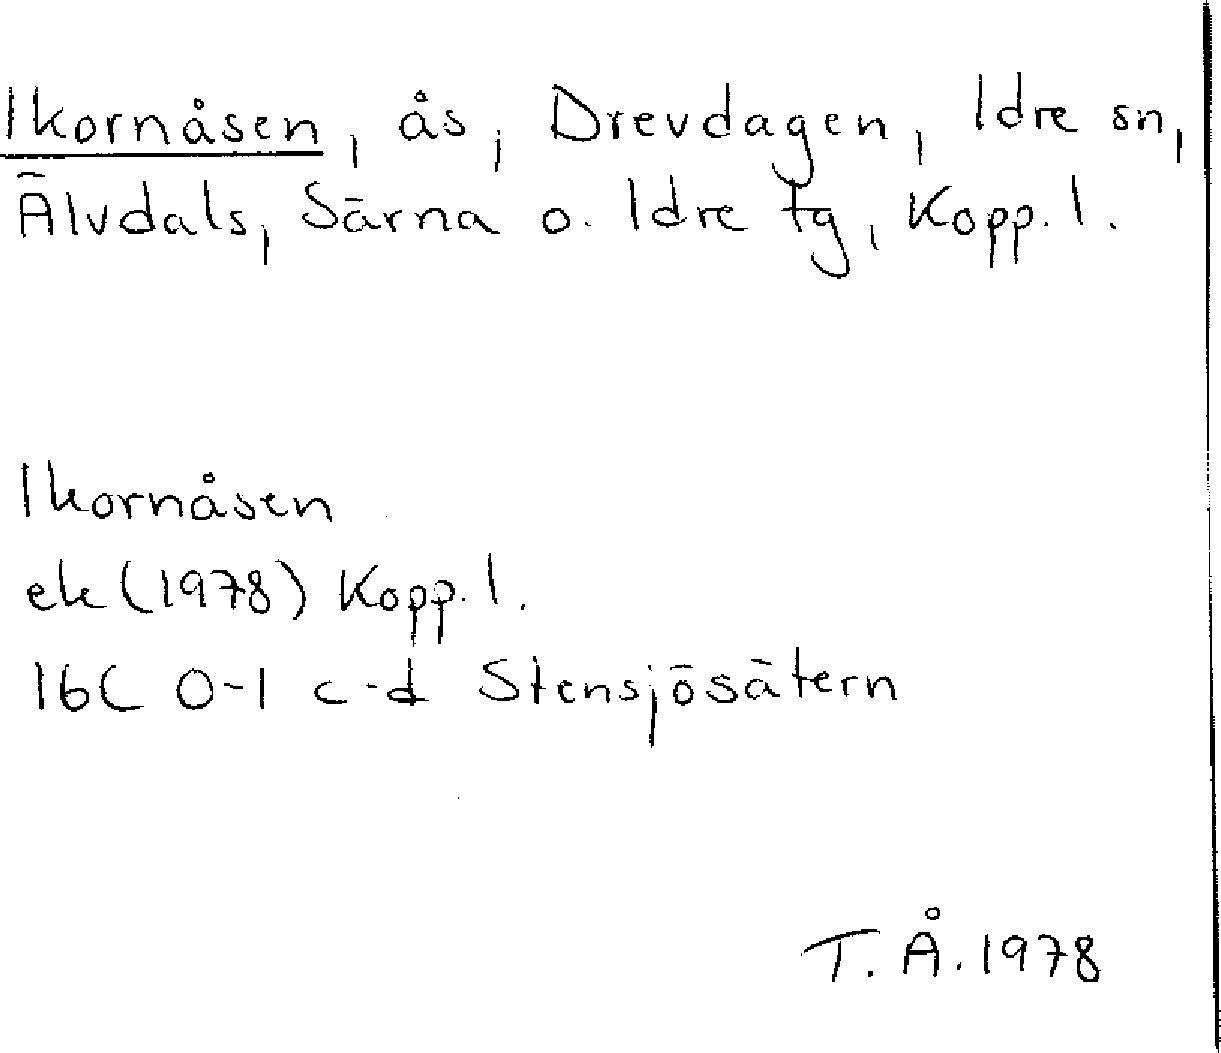 Ikornåsen, ås, Drevdagen, Idre sn,
Älvdals, Särna o. Idre tg, Kopp. l.
Ikornåsen
ek (1978) Kopp. l.
16C 0-1 c-d Stensjösätern
T. Å. 1978